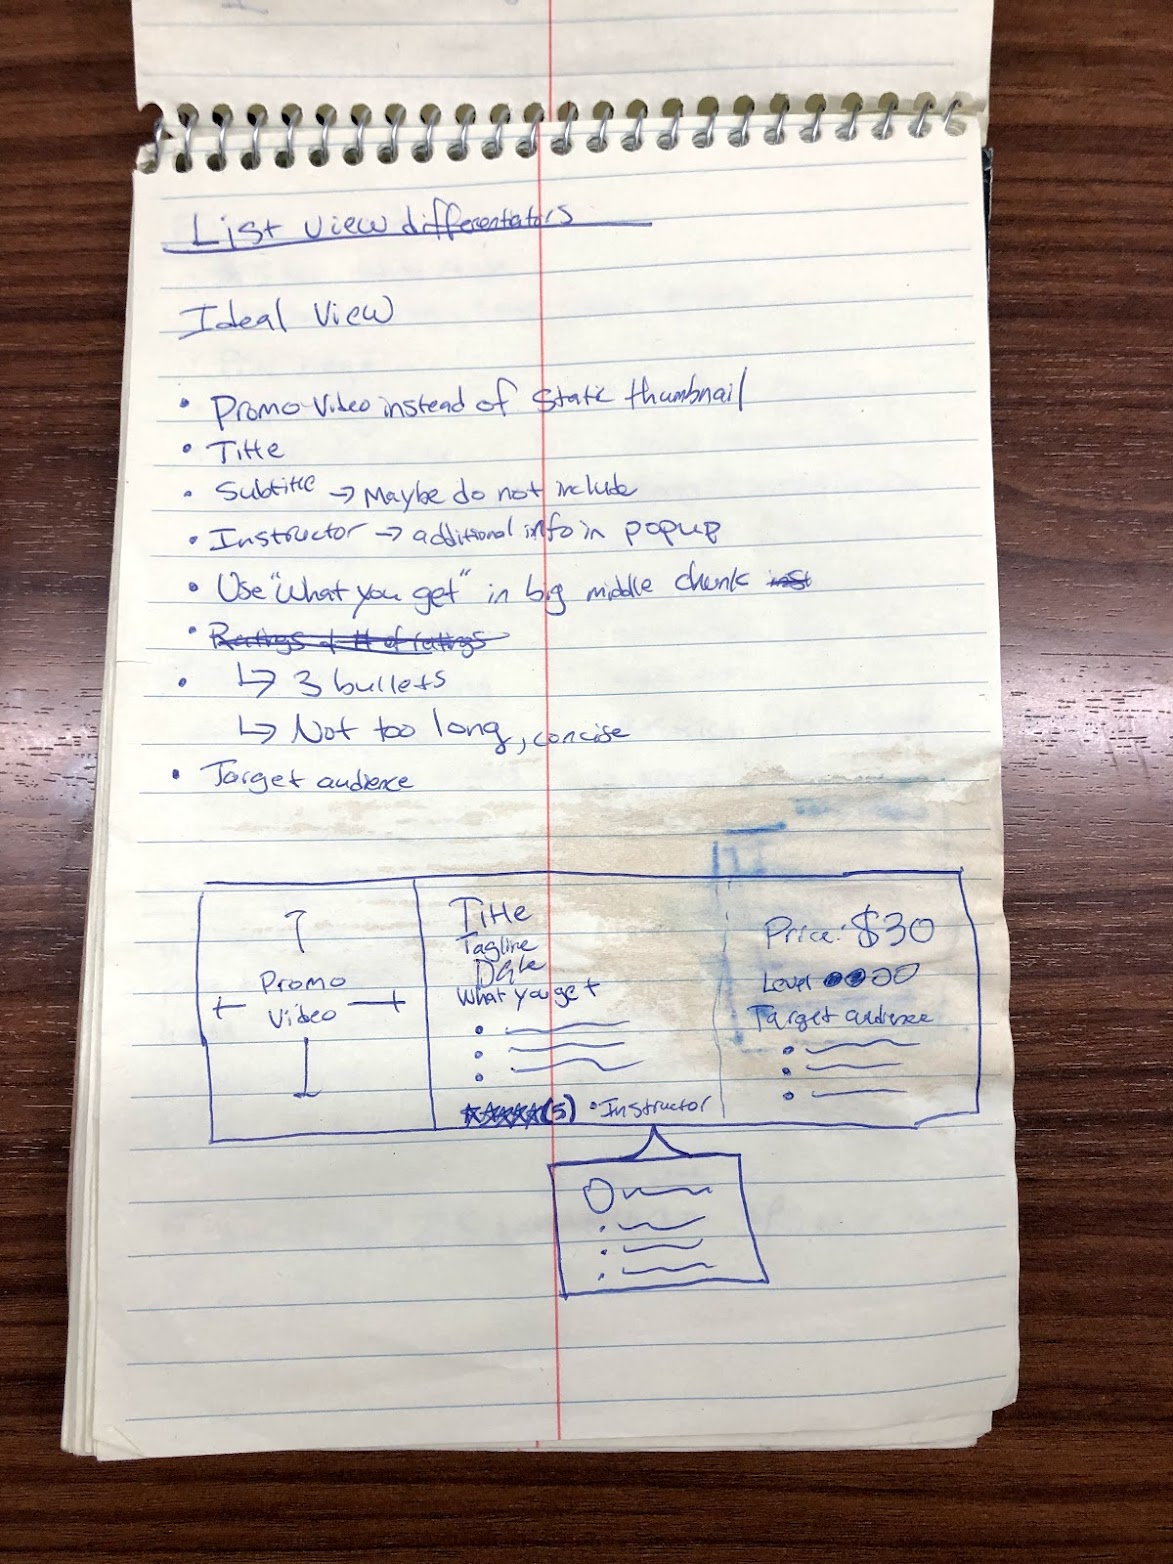 List view differentiators
Ideal View
• Promo Video instead of static thumbnail
• Title
• Subtitle → Maybe do not include
• Instructor → additional info in popup
• Use "What you get" in big middle chunk inst
• Ratings + # of ratings
• ↳ 3 bullets
↳ Not too long, concise
• Target audience
Promo
Video
Title
Tagline
Date
What you get
★★★★★(5) • Instructor
Price: $30
Level
Target audience